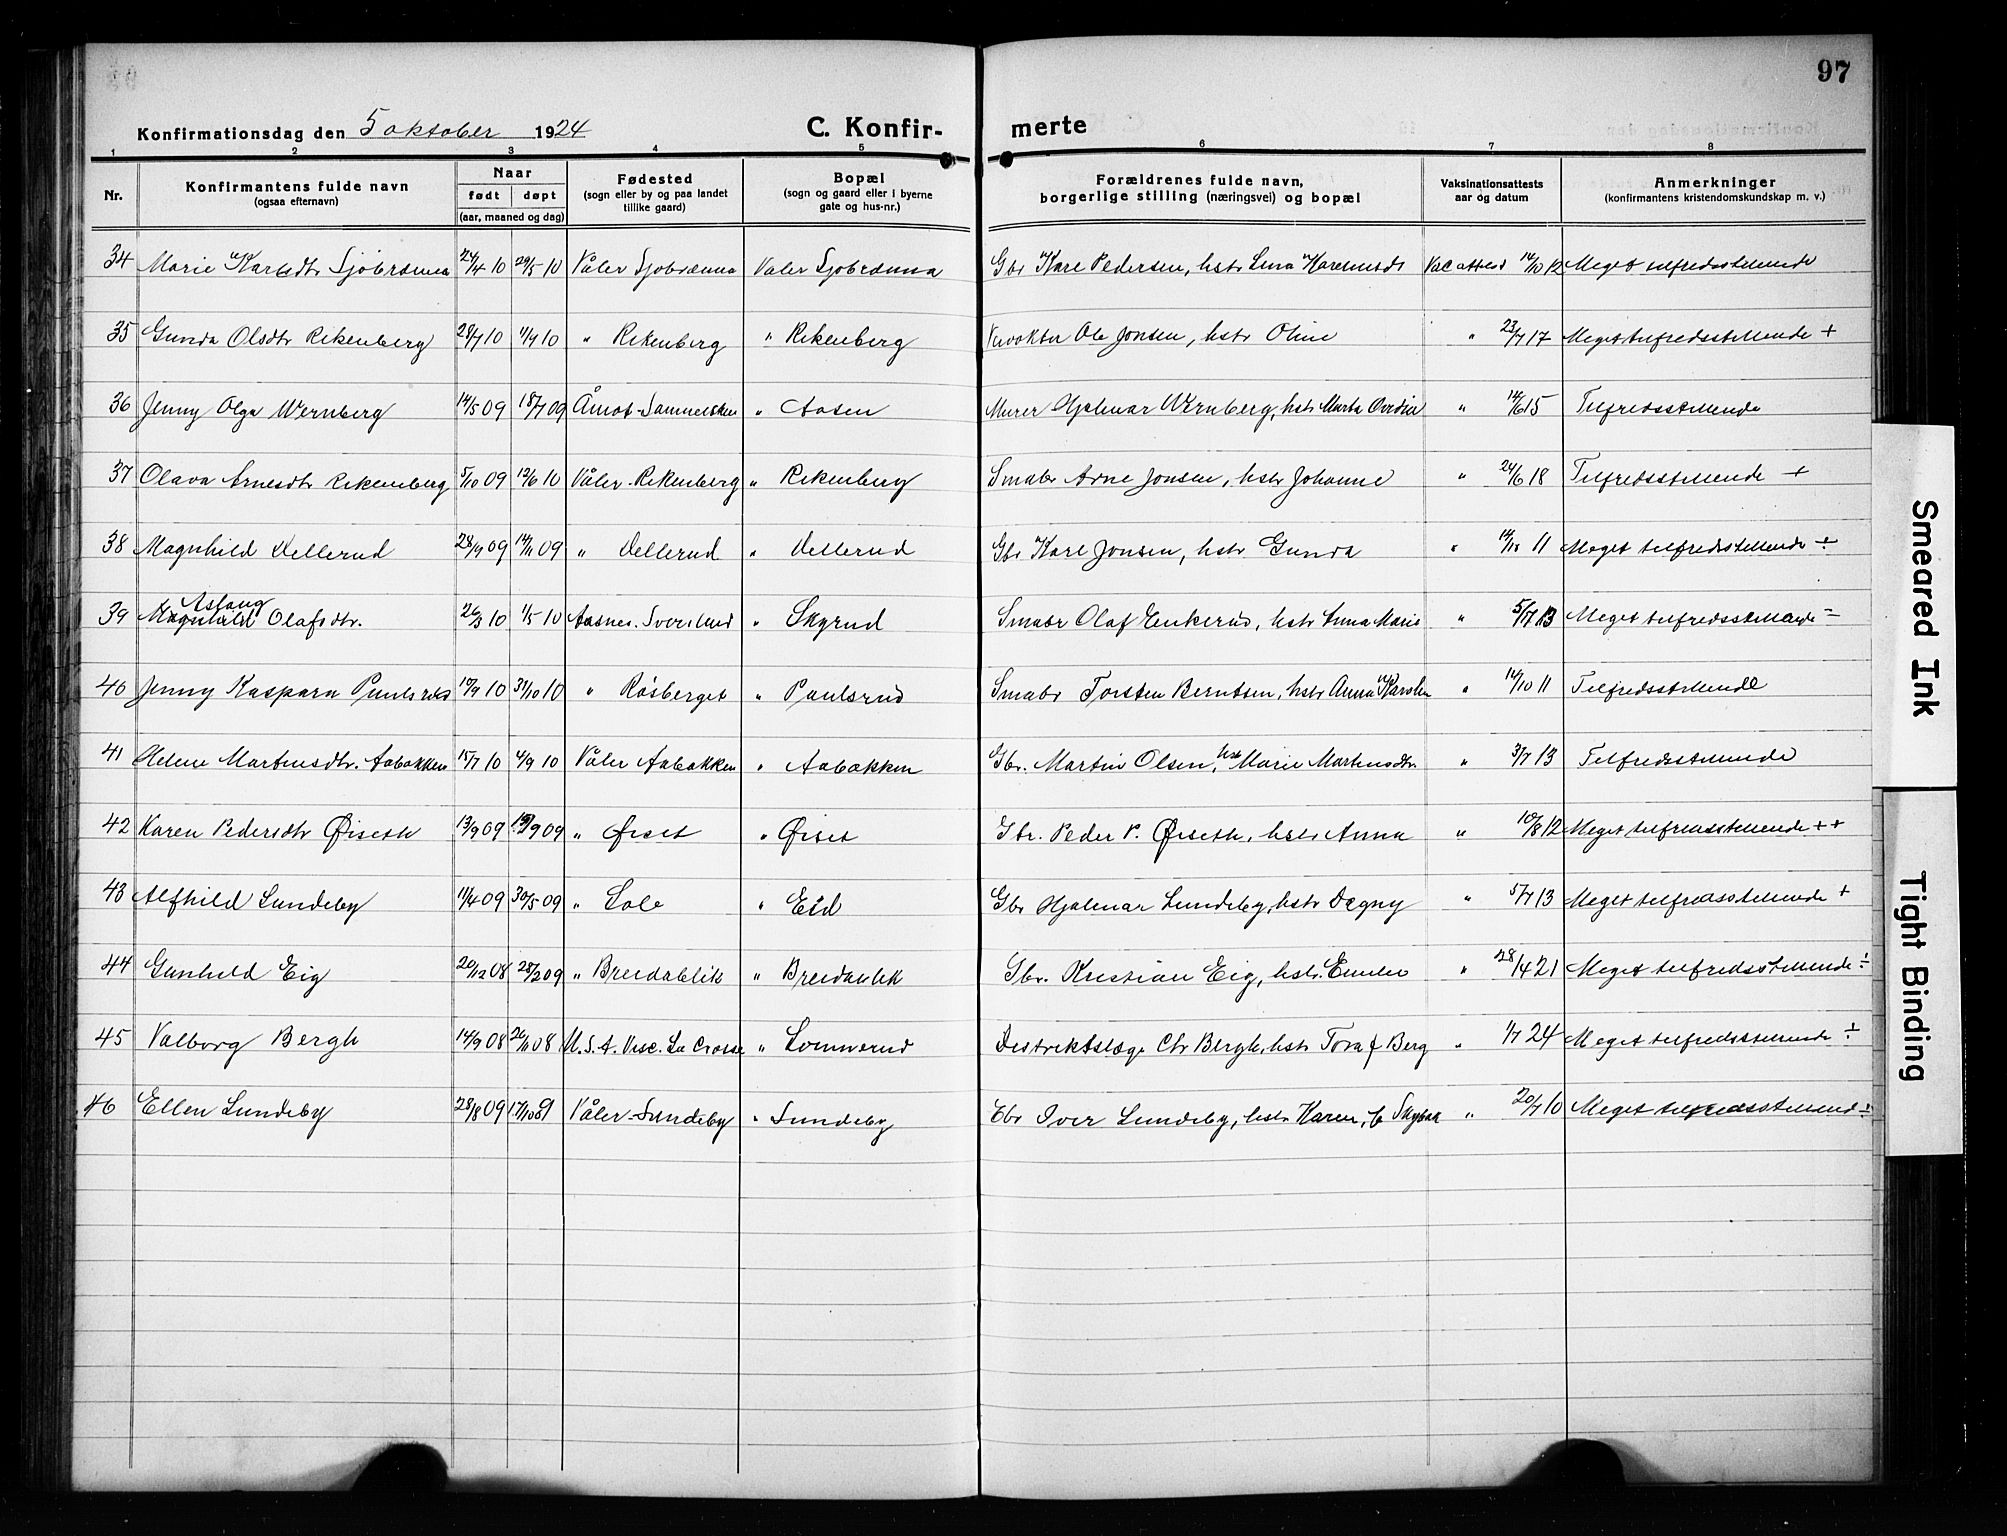 97
Konfirmationsdag den 5 oktober 1924 C. Konfir- merte
1 2 3 4 5 6 7 8
Nr. Konfirmantens fulde navn (ogsaa efternavn) Naar født døpt (aar, maaned og dag) Fødested (sogn eller by og paa landet tillike gaard) Bopæl (sogn og gaard eller i byerne gate og hus-nr.) Forældrenes fulde navn, borgerlige stilling (næringsvei) og bopæl Vaksinationsattests aar og datum Anmerkninger (konfirmantens kristendomskundskap m. v.)
34 Marie 24/4 10 29/5 10 Våler Våler Gbr Kare Pedersen, hstr Vac attest 14/10 12 Meget tilfredsstillende
35 Gunda Olsdtr Rikenberg " Rikenberg " Rikenberg Ole Jonsen, hstr Oline " 23/7 17 Meget tilfredsstillende +
36 Jenny Olga Wernberg 14/5 09 18/7 09 Åmot " Aasen Murer Hjalmar Wernberg, hstr Marta " 14/6 15 Tilfredsstillende
37 Olava Arnesdtr Rikenberg 5/10 09 12/6 10 Våler Rikenberg " Rikenberg Smabr Arne Jonsen, hstr Johanne " 24/6 18 Tilfredsstillende +
38 Magnhild Vellerud 28/9 09 14/11 09 " Vellerud " Vellerud Gbr Kare Jonsen, hstr Gunda " 11 Meget tilfredsstillende ÷
39 Aslaug Olafsdtr. 26/3 10 1/5 10 Aasnes. " Skyrud Smabr Olaf Enkerud, hstr Anna Marie " 5/7 13 Meget tilfredsstillende
40 Jenny Kaspara 10 31/10 10 " Råsberget " Paulsrud Smabr Torsten Berntsen, hstr Anna " 14/10 11 Tilfredsstillende
41 Helene Martinsdtr. Aabakken 15/7 10 4/9 10 Våler Aabakken " Aabakken Gbr. Martin Olsen, hstr Marie Martinsdtr. " 3/7 13 Tilfredsstillende
42 Karen Pedersdtr Øiseth 13/9 09 09 " Øiset " Øiset Gbr. Peder P. Øiseth, hstr Anna " 10/8 12 Meget tilfredsstillende ++
43 Alfhild Lundeby 11/4 09 30/5 09 " " Eid Gbr Hjalmar Lundeby, hstr Dagny " 5/7 13 Meget tilfredsstillende +
44 Gunhild Eig 20/12 08 28/2 09 " Breidablik " Breidablik Gbr. Kristian Eig, hstr. " 28/4 21 Meget tilfredsstillende ÷
45 Valborg Bergh 14/9 08 26/11 08 U.S.A. Visc. La Crosse " Distriktslæge Chr Bergh, hstr Tora f Berg " 1/7 24 Meget tilfredsstillende ÷
46 Ellen Lundeby 28/8 09 09 Våler Lundeby " Lundeby Gbr Iver Lundeby, hstr Karen, " 20/7 10 Meget tilfredsstillend ÷
Smeared Ink
Tight Binding